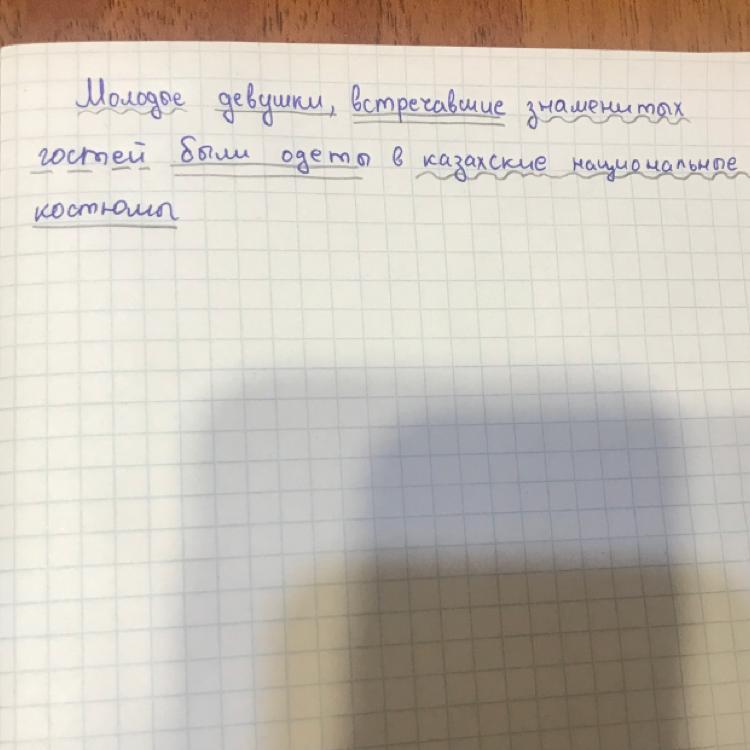 Молодые девушки, встречавшие знаменитых
гостей были одеты в казахские национальные
костюмы